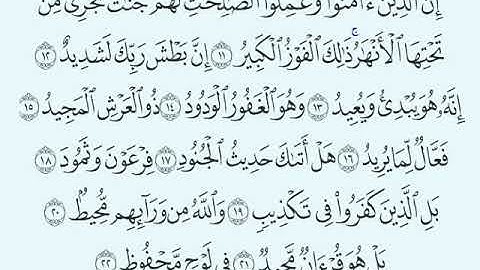 إِنَّ ٱلَّذِينَ ءَامَنُوا۟ وَعَمِلُوا۟ ٱلصَّـٰلِحَـٰتِ لَهُمْ جَنَّـٰتٌ تَجْرِى مِن
تَحْتِهَا ٱلْأَنْهَـٰرُ ۚ ذَٰلِكَ ٱلْفَوْزُ ٱلْكَبِيرُ ١١ إِنَّ بَطْشَ رَبِّكَ لَشَدِيدٌ ١٢
إِنَّهُۥ هُوَ يُبْدِئُ وَيُعِيدُ ١٣ وَهُوَ ٱلْغَفُورُ ٱلْوَدُودُ ١٤ ذُو ٱلْعَرْشِ ٱلْمَجِيدُ ١٥
فَعَّالٌ لِّمَا يُرِيدُ ١٦ هَلْ أَتَىٰكَ حَدِيثُ ٱلْجُنُودِ ١٧ فِرْعَوْنَ وَثَمُودَ ١٨
بَلِ ٱلَّذِينَ كَفَرُوا۟ فِى تَكْذِيبٍ ١٩ وَٱللَّهُ مِن وَرَآئِهِم مُّحِيطٌۢ ٢٠
بَلْ هُوَ قُرْءَانٌ مَّجِيدٌ ٢١ فِى لَوْحٍ مَّحْفُوظٍۭ ٢٢